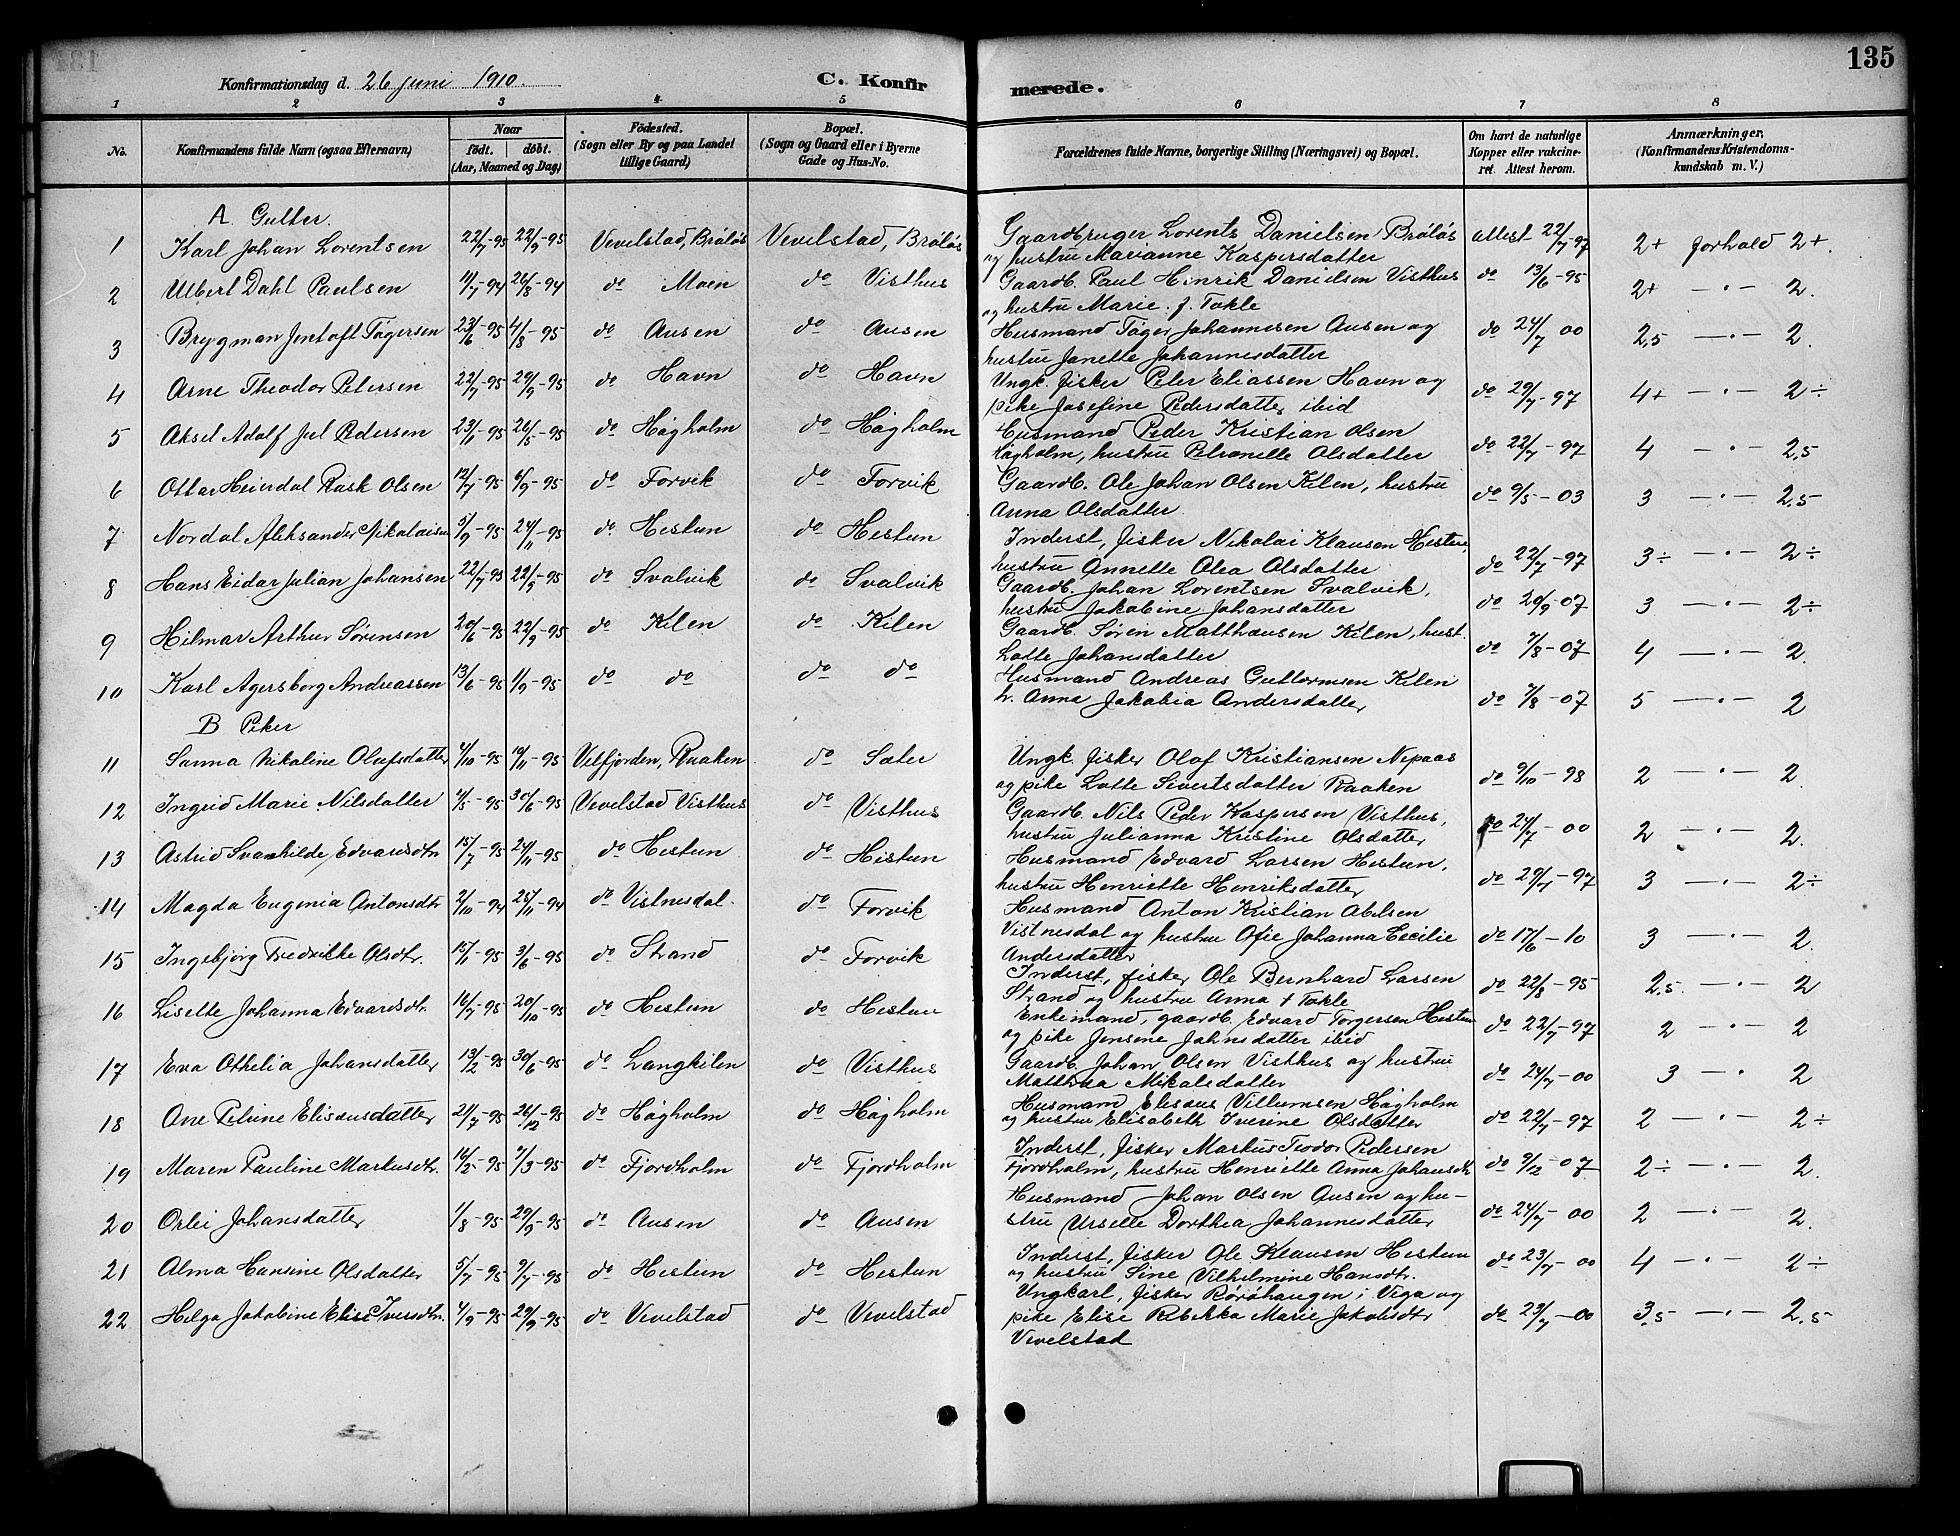 135
Konfirmationsdag d. 26 juni 1910.
C. Konfirmerede.
1 2 3 4 5 6 7 8
No.
Konfirmandens fulde Navn (ogsaa Efternavn)
Naar
födt. döbt.
(Aar, Maaned og Dag)
Födested.
(Sogn eller By og paa Landet
tillige Gaard)
Bopæl.
(Sogn og Gaard eller i Byerne
Gade og Hus-No.
Forældrenes fulde Navne, borgerlige Stilling (Næringsvei) og Bopæl.
Om havt de naturlige
Kopper eller vakcine-
ret. Attest herom.
Anmærkninger.
(Konfirmandens Kristendoms-
kundskab m. V.)
A. Gutter.
1 Karl Johan Lorentsen 22/7-95 22/9-95 Vevelstad, Bröløs Vevelstad, Bröløs Gaardbruger Lorents Danielsen Bröløs attest 22/7-97 2+ forhold 2+.
og hustru Marianne Kaspersdatter
2 Albert Dahl Paulsen 11/7-94 26/8-94 do Moen do Visthus Gaardb. Paul Hinrik Danielsen Visthus do 13/6-95 2+ —·— 2.
og hustru Marie f. Tokle
3 Brygman Jentoft Tøgersen 23/6-95 4/8-95 do Ausen do Ausen Husmand Tøger Johannesen Ausen og do 24/7 00 2,5 —·— 2.
hustru Janette Johannesdatter
4 Arne Theodor Petersen 22/7-95 29/9-95 do Havn do Havn Ungk. fisker Peter Eliassen Havn og do 29/7-97 4+ —·— 2÷
pike Josefine Pedersdatter ibid
5 Aksel Adolf Jul Pedersen 23/1-95 26/5-95 do Høgholm do Høgholm Husmand Peder Kristian Olsen do 22/7-97 4 —·— 2,5
Høgholm, hustru Petronelle Olsdatter
6 Ottar Heierdal Rask Olsen 12/7-95 6/9-95 do Forvik do Forvik Gaardb. Ole Johan Olsen Kilen, hustru do 9/5-03 3 —·— 2,5
Anna Olsdatter
7 Nordal Aleksander Nikolaisen 5/9-95 24/11-95 do. Hestun do Hestun Inderst, fisker Nikolai Klausen Hestun, do 22/7-97 3÷ —·— 2÷
hustru Annette Olea Olsdatter
8 Hans Eidar Julian Johansen 22/7-95 22/9-95 do Svalvik do Svalvik Gaardb. Johan Lorentsen Svalvik, do 20/9 07 3 —·— 2÷
hustru Jakobine Johansdatter
9 Hilmar Arthur Sørensen 20/6-95 22/9-95 do Kilen do Kilen Gaardb. Søren Matthæusen Kilen, hust. do 7/8-07 4 —·— 2.
Lotte Johansdatter
10 Karl Agersborg Andreassen 13/6-95 1/9-95 do do do do Husmand Andreas Guttormsen Kilen do 7/8-07 5 —·— 2
h. Anna Jakobia Andersdatter
B Piker
11 Sanna Nikoline Olufsdatter 4/10-95 10/11-95 Velfjorden, Raaken do Sæter Ungk. fisker Olof Kristiansen Nepaas do 9/10-98 2 —·— 2
og pike Lotte Sivertsdatter Raaken
12 Ingrid Marie Nilsdatter 4/5-95 30/6-95 Vevelstad Visthus do Visthus Gaardb. Nils Peder Kaspersen Visthus, do 24/7-00 2 —·— 2.
hustru Julianna Kristine Olsdatter
13 Astrid Svanhilde Edvardsdtr 15/7-95 24/11-95 do Hestun do Hestun Husmand Edvard Larsen Hestun, do 29/7-97 3 —·— 2÷
hustru Henriette Henriksdatter
14 Magda Eugenia Antonsdtr 2/10-94 25/11-94 do Vistnesdal. do Forvik Husmand Anton Kristian Abelsen do 17/6-10 3 —·— 2.
Vistnesdal og hustru Ofie Johanna Cecilie
Andersdatter
15 Ingebjörg Fredrikke Olsdtr. 15/1-95 3/6-95 do Strand do Forvik Inderst, fisker Ole Bernhard Larsen do 22/8-95 2,5. —·— 2
Strand og hustru Anna f Tokle
16 Liselte Johanna Edvardsdtr. 16/7-95 20/10-95 do Hestun do Hestun Enkemand, gaardb. Edvard Torgersen Hestun do 22/7-97 2 —·— 2
og pike Jensine Johnsdatter ibid
17 Eva Othelia Johansdatter 13/2-95 30/6-95 do Langkilen do Visthus Gaardb. Johan Olsen Visthus og hustru do 24/7-00 3 —· 2
Matthea Mikalsdatter
18 Ane Petrine Elisæusdatter 21/7-95 26/12-95 do Høgholm do Høgholm Husmann Elisæus Villumsen Høgholm do 22/7-97 2 —·— 2÷
og hustru Elisabeth Iverine Olsdatter
19 Maren Pauline Markusdtr. 16/2-95 7/3-95 do Fjordholm do Fjordholm Inderst, fisker Markus Teodor Pedersen do 9/12-07 2÷ —·— 2.
Fjordholm, hustru Henriette Anna Johansdtr
20 Orlei Johansdatter 1/8-95 29/9-95 do Ausen do Ausen Husmand Johan Olsen Ausen og hu- do 24/7-00 2 —·— 2.
stru Urselle Dorthea Johannesdatter
21 Alma Hansine Olsdatter 5/7-95 9/7-95 do Hestun do Hestun Inderst, fisker Ole Klausen Hestun do 23/7-00 4 —·— 2÷
og hustru Sine Vilhelmine Hansdtr.
22 Helga Jakobine Elise Iversdtr. 4/9-95 29/9-95 do Vevelstad do Vevelstad Ungkarl, fisker Rørøhaugen i Viga og do 23/7-00 3,5 —·— 2,5
pike Elise Rebekka Marie Jakobsdtr
Vevelstad